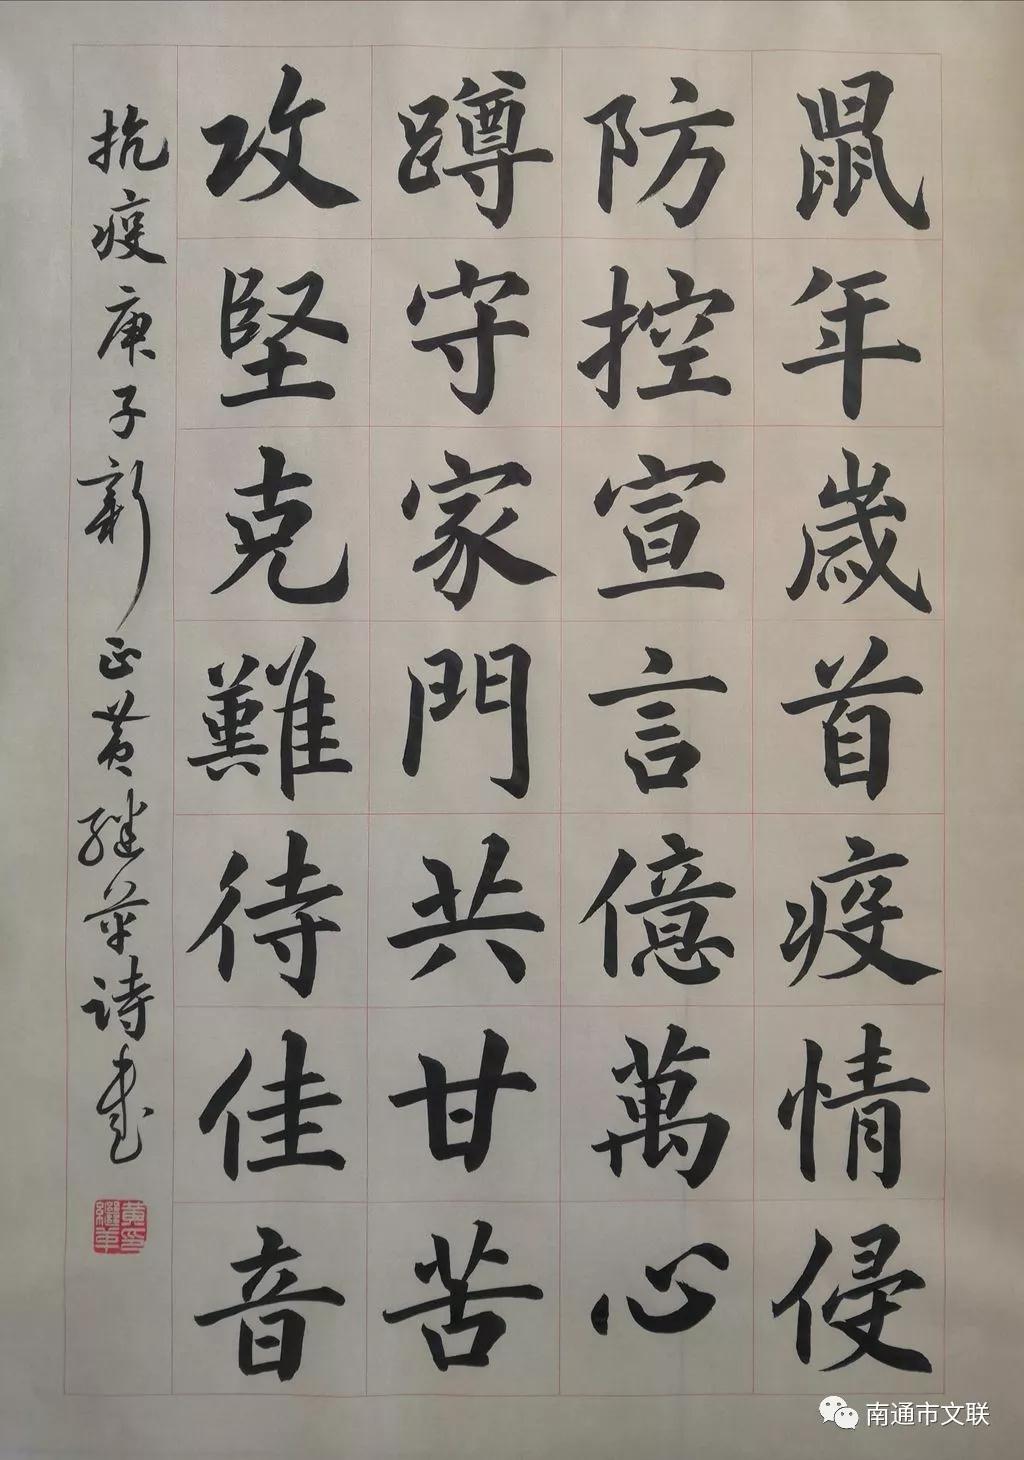 鼠年歲首疫情侵
防控宣言億萬心
蹲守家門共甘苦
攻堅克難待佳音
抗疫庚子新正黄继苹诗书
南通市文联